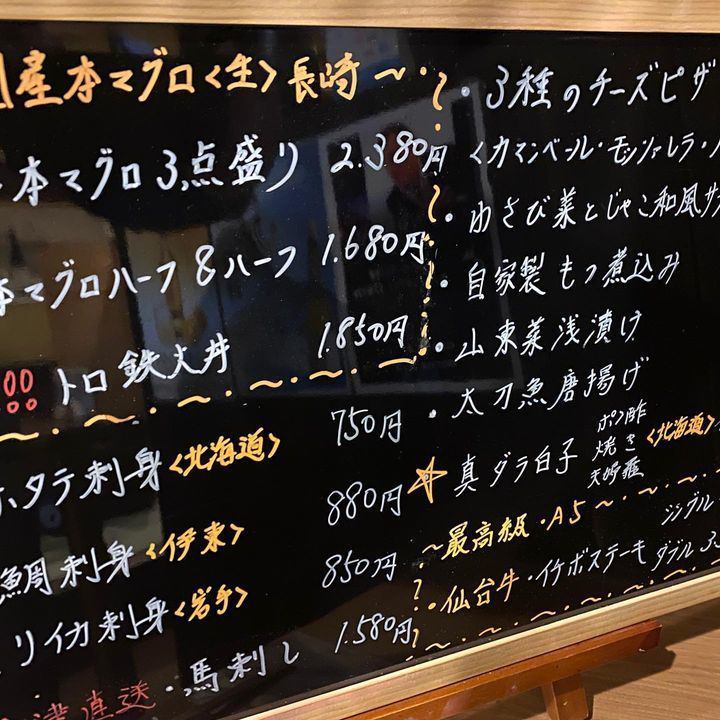 産本マグロ<生>長崎～
本マグロ3点盛り 2.380円
本マグロハーフ&ハーフ 1.680円
!!! トロ鉄火丼 1.850円
ホタテ刺身<北海道> 750円
鯛刺身<伊東> 880円
リイカ刺身<岩手> 850円
直送・馬刺し 1.580円
・3種のチーズピザ
<カマンベール・モッツァレラ・
・わさび菜とじゃこ和風サ
・自家製もつ煮込み
・山東菜浅漬け
・太刀魚唐揚げ
☆真ダラ白子 ポン酢 焼き 天婦羅 <北海道>
～最高級・A5～
シングル
・仙台牛・イチボステーキ ダブル 3.